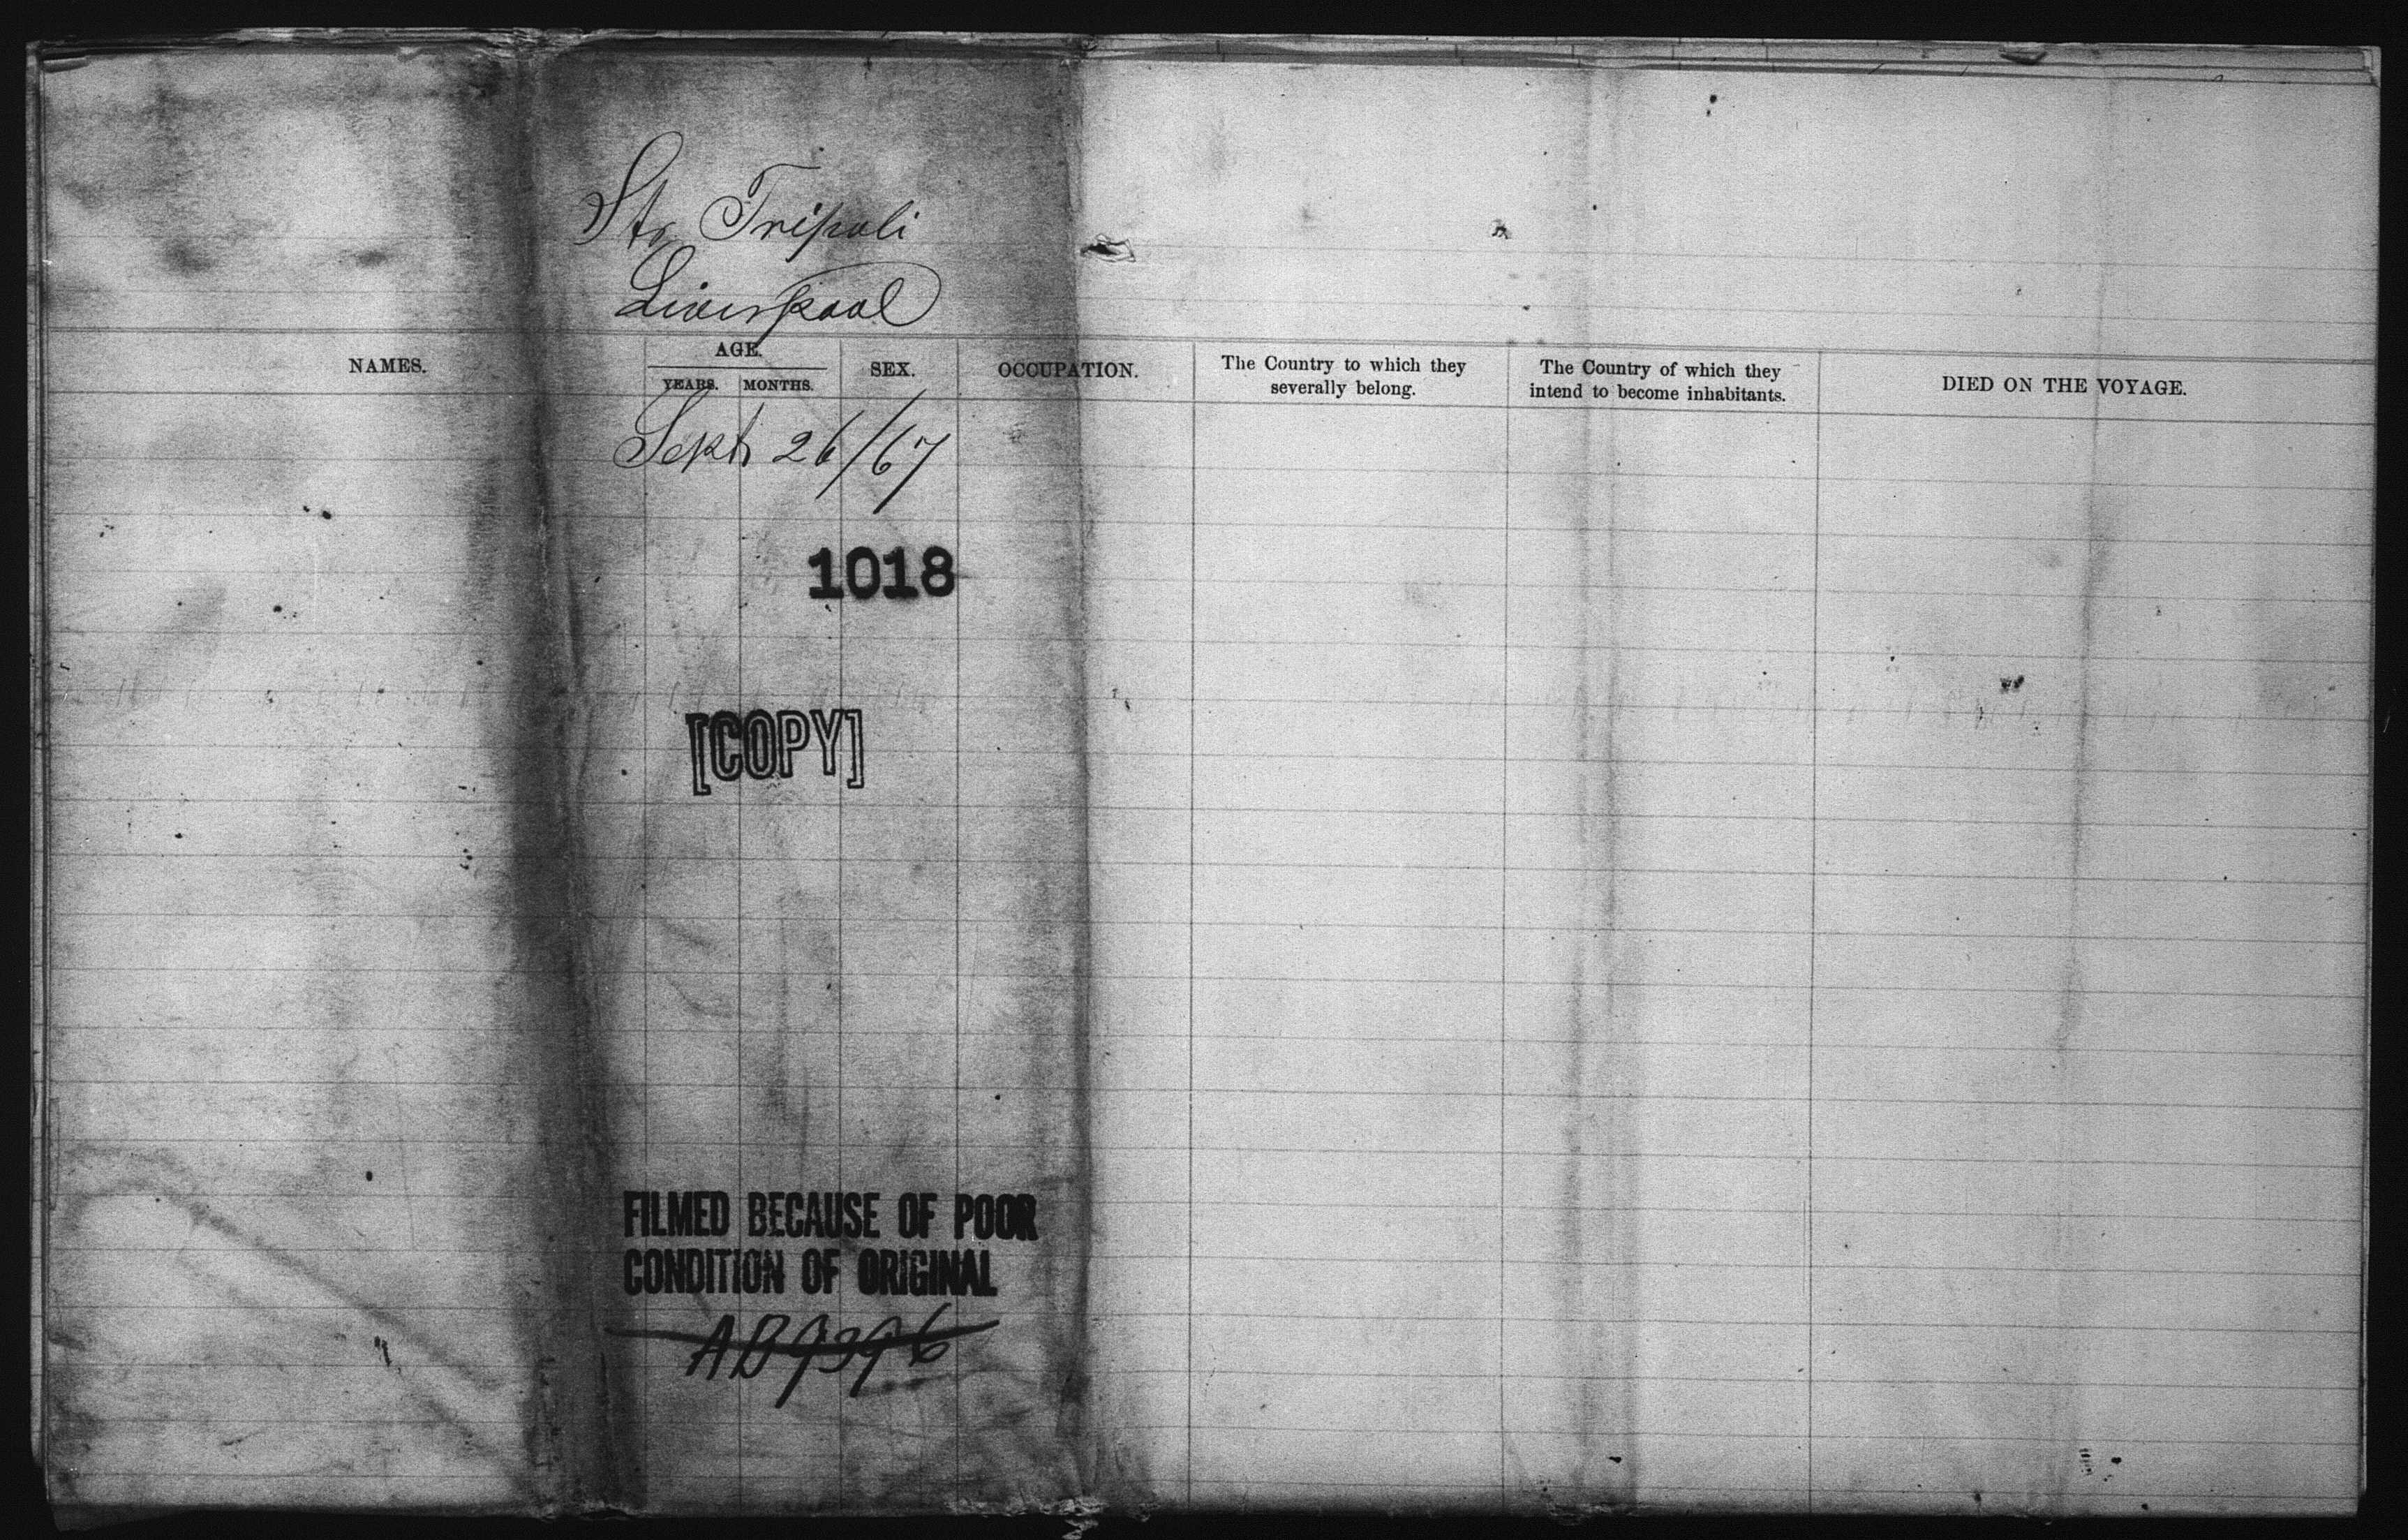 Str Tripoli
Liverpool
NAMES.
AGE.
YEARS.
MONTHS.
SEX.
OCCUPATION.
The Country to which they
severally belong.
The Country of which they
intend to become inhabitants.
DIED ON THE VOYAGE.
Sept 26/67
1018
[COPY]
FILMED BECAUSE OF POOR
CONDITION OF ORIGINAL
AB9396